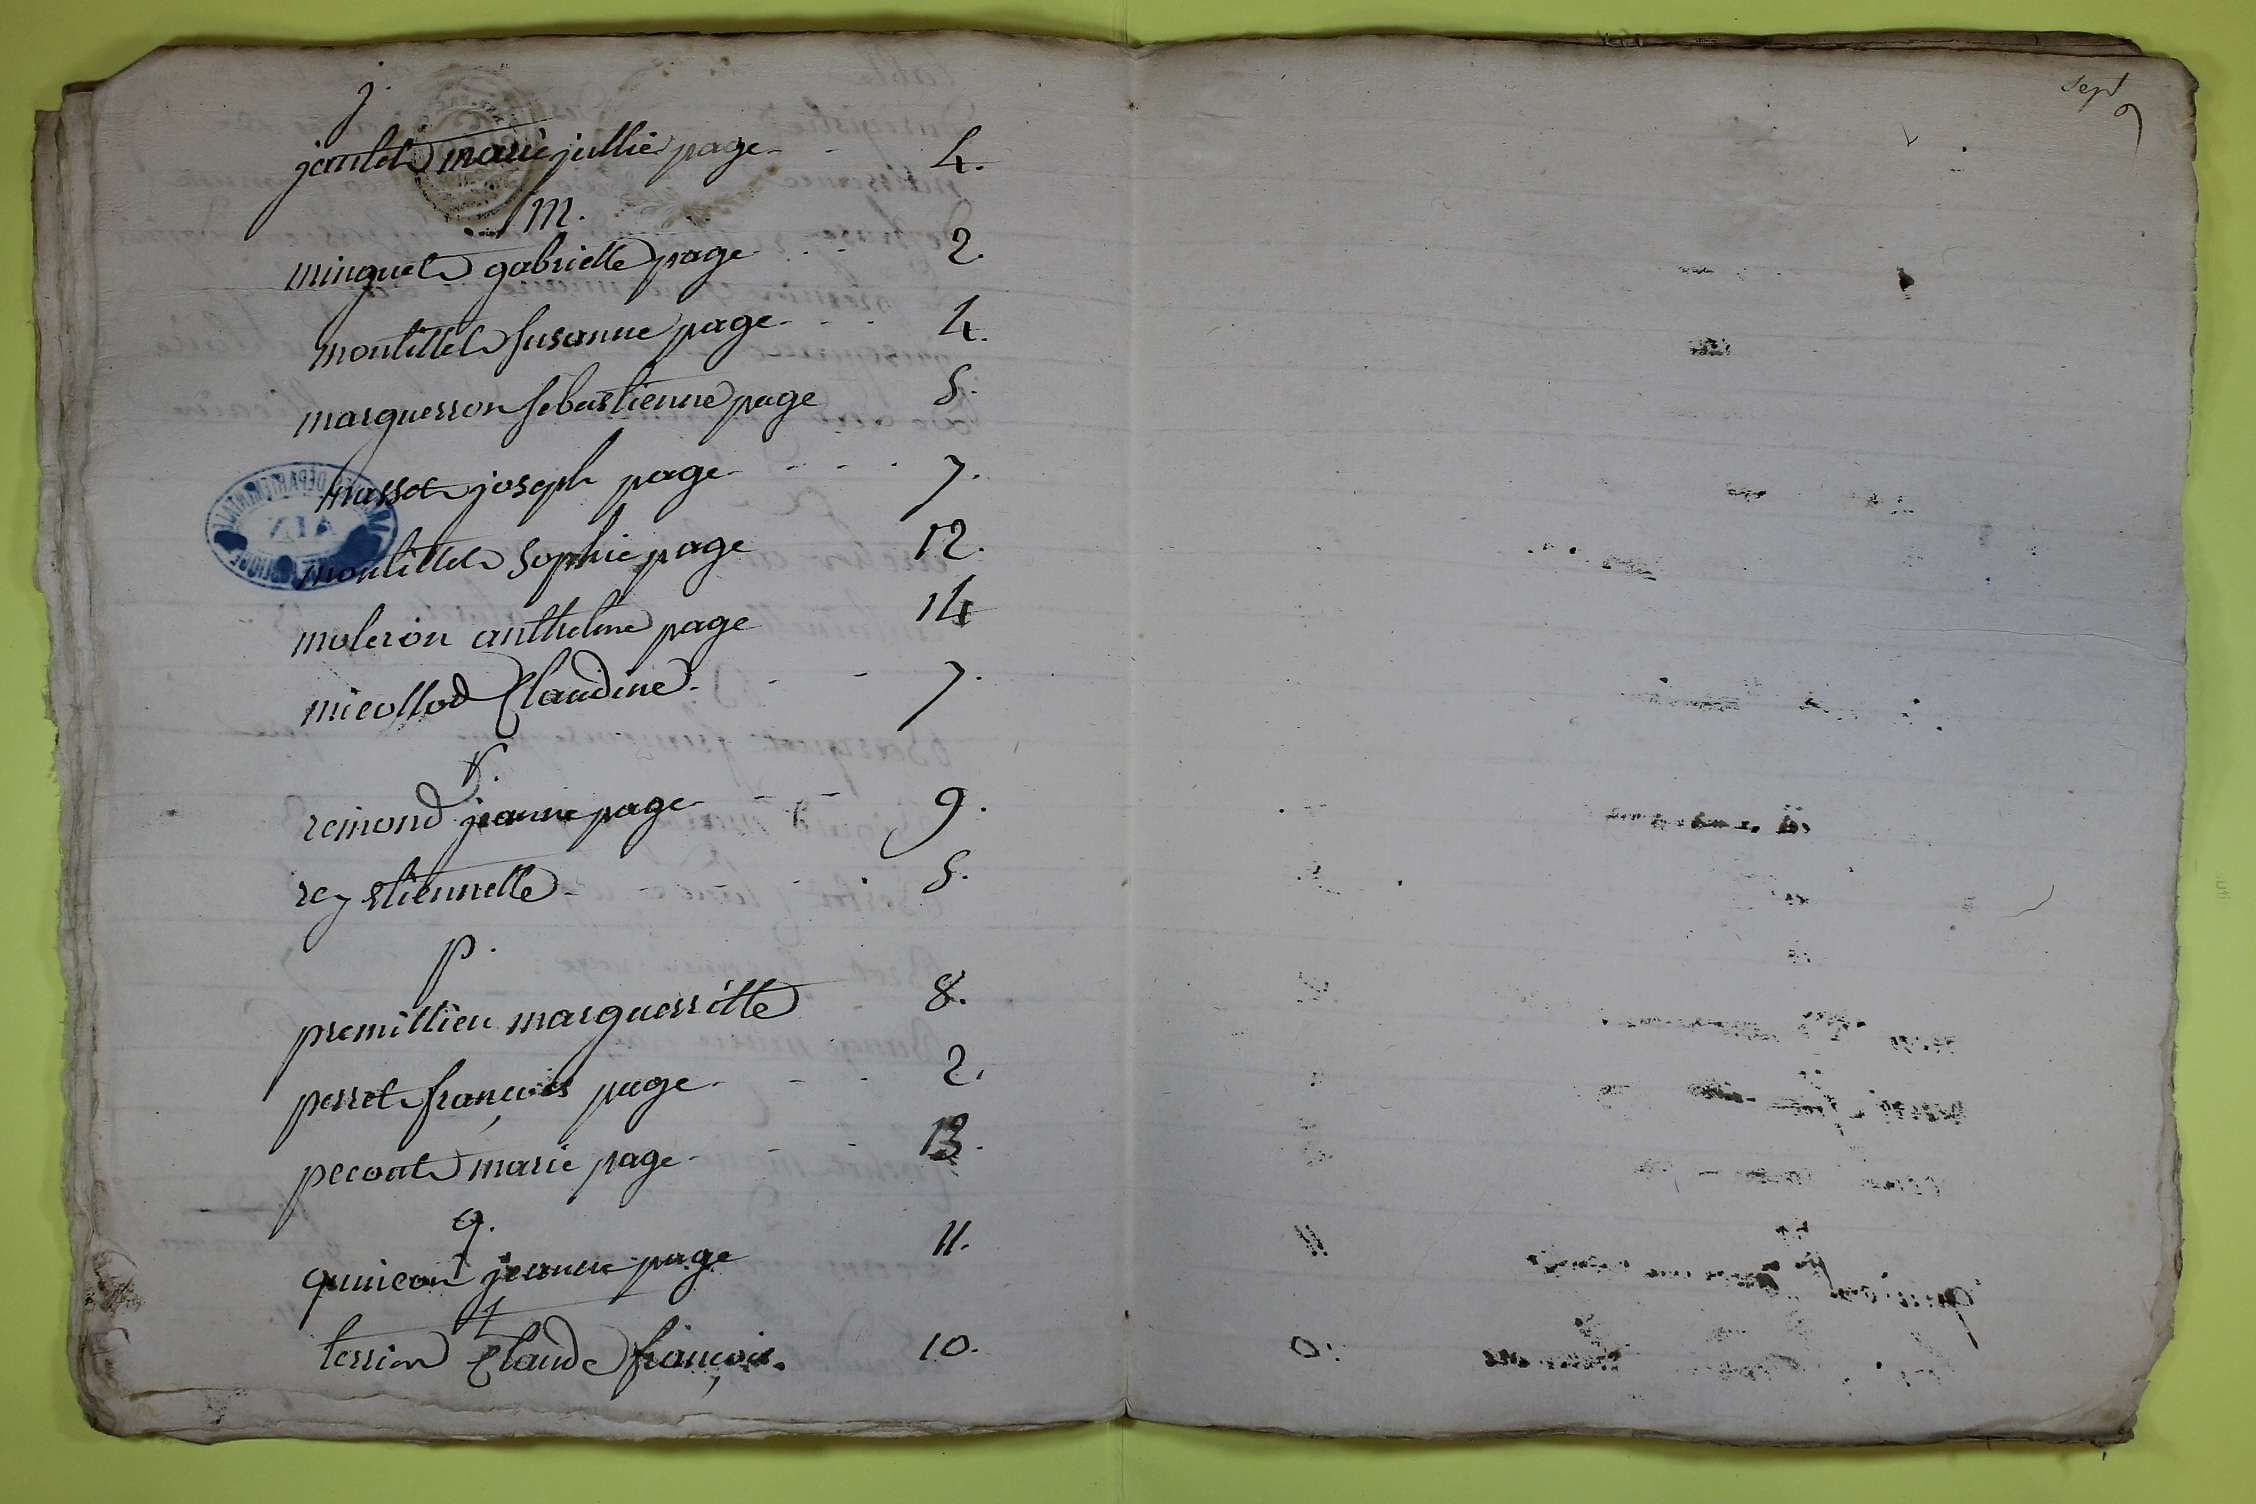 j.
jantet marie jullie page 4.
m.
minguet gabrielle page 2.
montillet susanne page 4.
marguerron sebastienne page 5.
masset joseph page 7.
montillet sophie page 12.
moleron anthelme page 14
micollod Claudine 7.
r.
remond jeanne page 9.
rey etiennette 5.
p.
premillieu marguerritte 8.
perret françois page 2.
pecoat marie page 13.
q.
quinson jeanne page 11.
t
terrion Claude françois. 10.
Sept